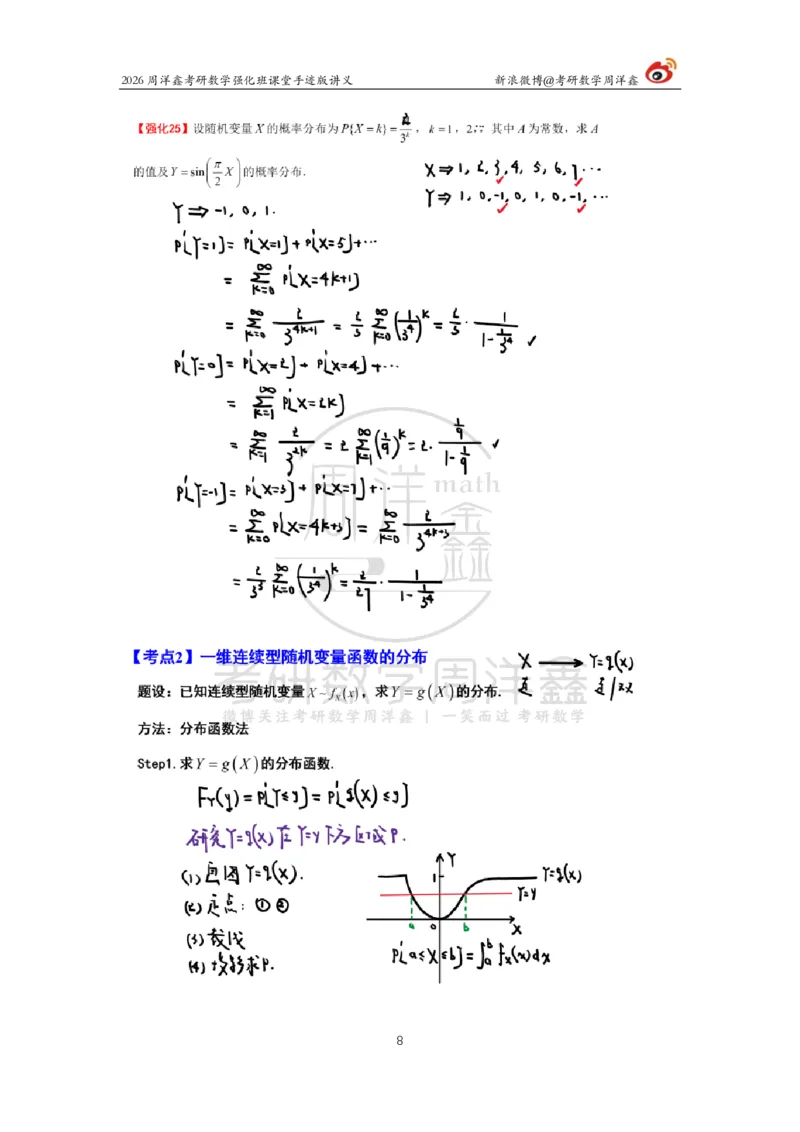 2026 周洋鑫考研数学强化班课堂手迹版讲义 新浪微博@考研数学周洋鑫
【强化25】设随机变量 X 的概率分布为 P{X = k} = 2/3^k , k = 1 , 2∷ 其中 A 为常数，求 A
的值及 Y = sin(π/2 X) 的概率分布.
X ⇒ 1, 2, 3, 4, 5, 6, 7 ...
Y ⇒ 1, 0, -1, 0, 1, 0, -1, ...
Y ⇒ -1, 0, 1.
P{Y=1} = P{X=1} + P{X=5} + ...
= ∑_{k=0}^{∞} P{X=4k+1}
= ∑_{k=0}^{∞} 2/3^{4k+1} = 2/3 ∑_{k=0}^{∞} (1/3^4)^k = 2/3 · 1/(1-1/3^4) ✓
P{Y=0} = P{X=2} + P{X=4} + ...
= ∑_{k=1}^{∞} P{X=2k}
= ∑_{k=1}^{∞} 2/3^{2k} = 2 ∑_{k=1}^{∞} (1/9)^k = 2 · (1/9)/(1-1/9) ✓
P{Y=-1} = P{X=3} + P{X=7} + ...
= ∑_{k=0}^{∞} P{X=4k+3} = ∑_{k=0}^{∞} 2/3^{4k+3}
= 2/3^3 ∑_{k=0}^{∞} (1/3^4)^k = 2/27 · 1/(1-1/3^4)
周洋鑫 math
【考点2】一维连续型随机变量函数的分布
X → Y=g(X)
题设：已知连续型随机变量 X ~ f_X(x)，求 Y = g(X) 的分布.
连 连/非连
考研数学周洋鑫
微博关注考研数学周洋鑫 | 一笑而过 考研数学
方法：分布函数法
Step1.求 Y = g(X) 的分布函数.
F_Y(y) = P{Y≤y} = P{g(X)≤y}
研究Y=g(x)在Y=y下方区域P.
(1) 画图 Y=g(x).
(2) 定点: ① ②
(3) 裁线
(4) 投影求P.
Y
1
Y=g(x)
Y=y
a 0 b X
P{a≤X≤b} = ∫_a^b f_X(x)dx
8